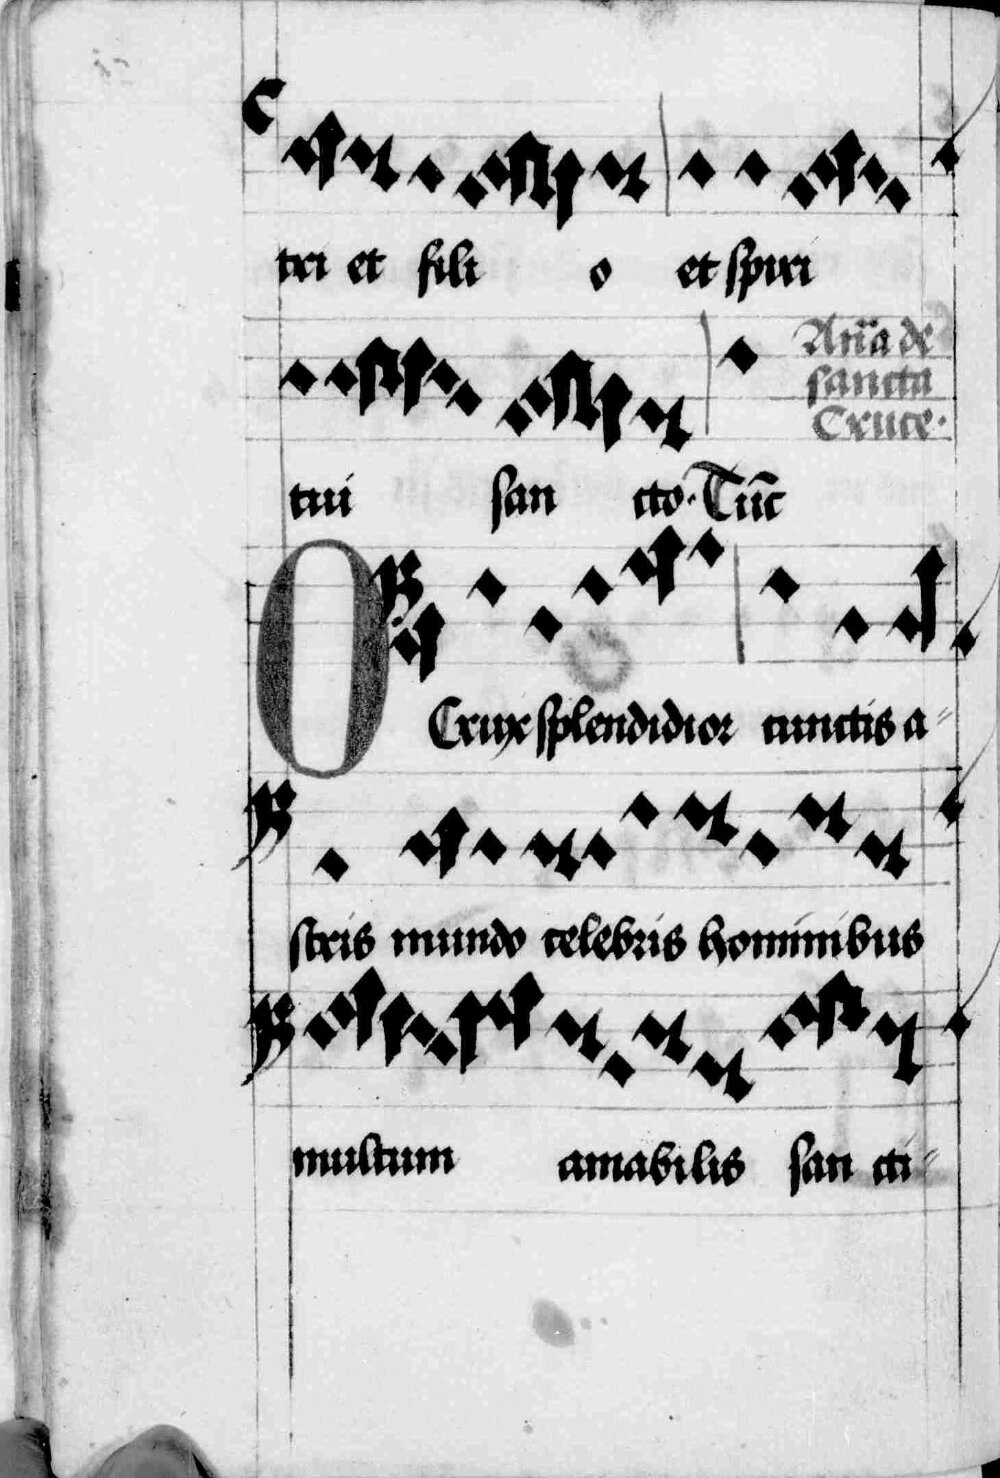 tri et fili o et spiri
Añ̃a de
sancta
Cruce.
tui san cto. Tūc
O Crux splendidior cunctis a-
stris mundo celebris hominibus
multum amabilis san cti-